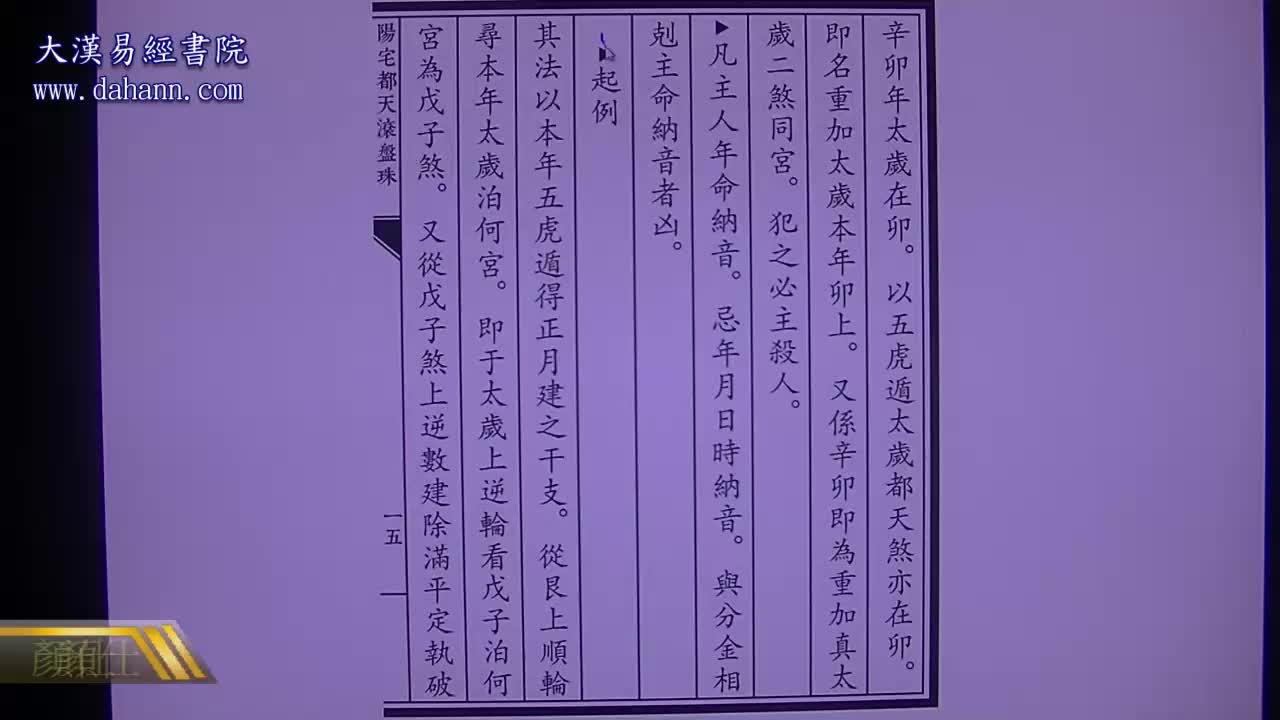 大漢易經書院
www.dahann.com
辛卯年太歲在卯。以五虎遁太歲都天煞亦在卯。
即名重加太歲本年卯上。又係辛卯即為重加真太
歲二煞同宮。犯之必主殺人。
▶凡主人年命納音。忌年月日時納音。與分金相
剋主命納音者凶。
起例
其法以本年五虎遁得正月建之干支。從艮上順輪
尋本年太歲泊何宮。即于太歲上逆輪看戊子泊何
宮為戊子煞。又從戊子煞上逆數建除滿平定執破
陽宅都天滾盤珠
一五